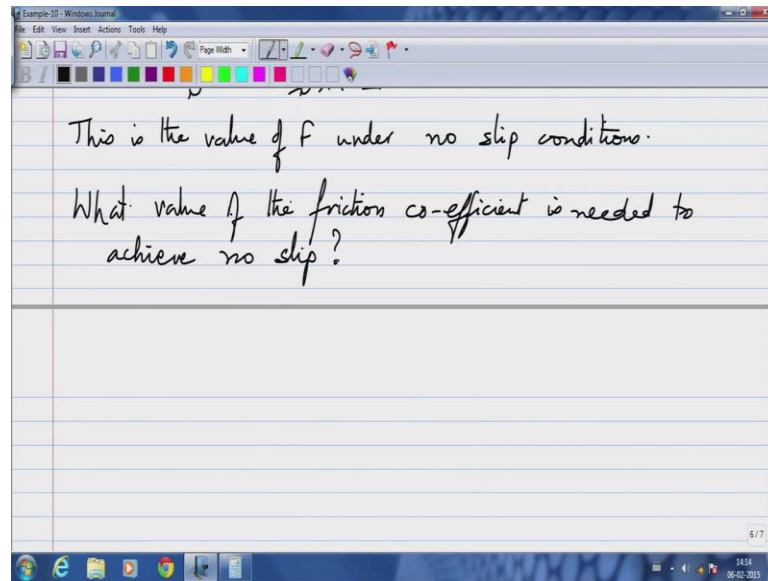 Example-10 - Windows Journal
File Edit View Insert Actions Tools Help
Page Width
B I
This is the value of F under no slip conditions.
What value of the friction co-efficient is needed to
achieve no slip?
6/7
14:14
06-02-2015